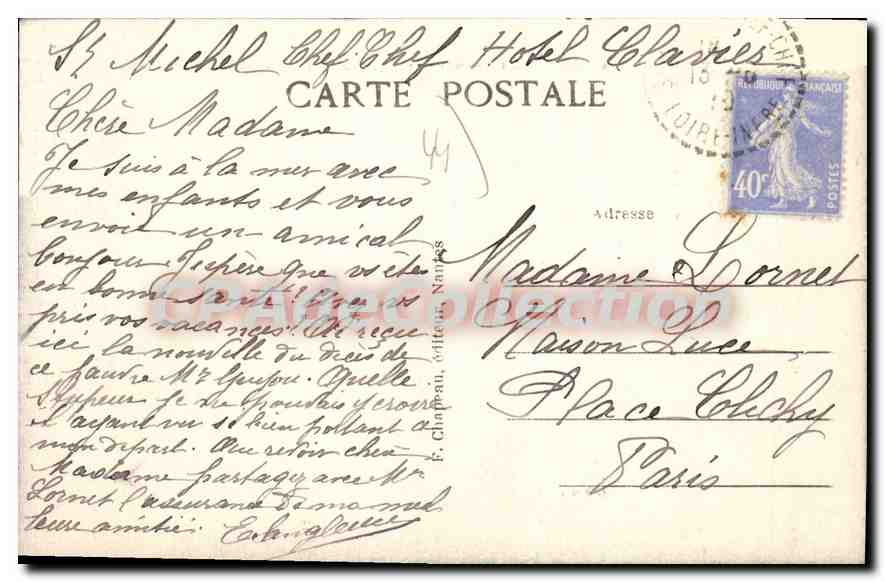 St Michel Chef Chef Hotel Clavier
CARTE POSTALE
Chère Madame
Je suis à la mer avec
mes enfants et vous
envoie un amical
bonjour. J'espère que vs êtes
en bonne santé! Avez vs
pris vos vacances? Ai reçu
ici la nouvelle du décès de
ce pauvre Mr Guyou. Quelle
Stupeur je ne pouvais y croire
l'ayant vu si bien portant à
mon départ. Au revoir chère
Madame partagez avec Mr
Lornet l'assurance de ma meil
leure amitié.
44
REPUBLIQUE FRANÇAISE
40c
POSTES
LOIRE-INFRE
Adresse
Madame Lornet
Maison Luce
Place Clichy
Paris
F. Chapeau, éditeur, Nantes
CPArteCollection